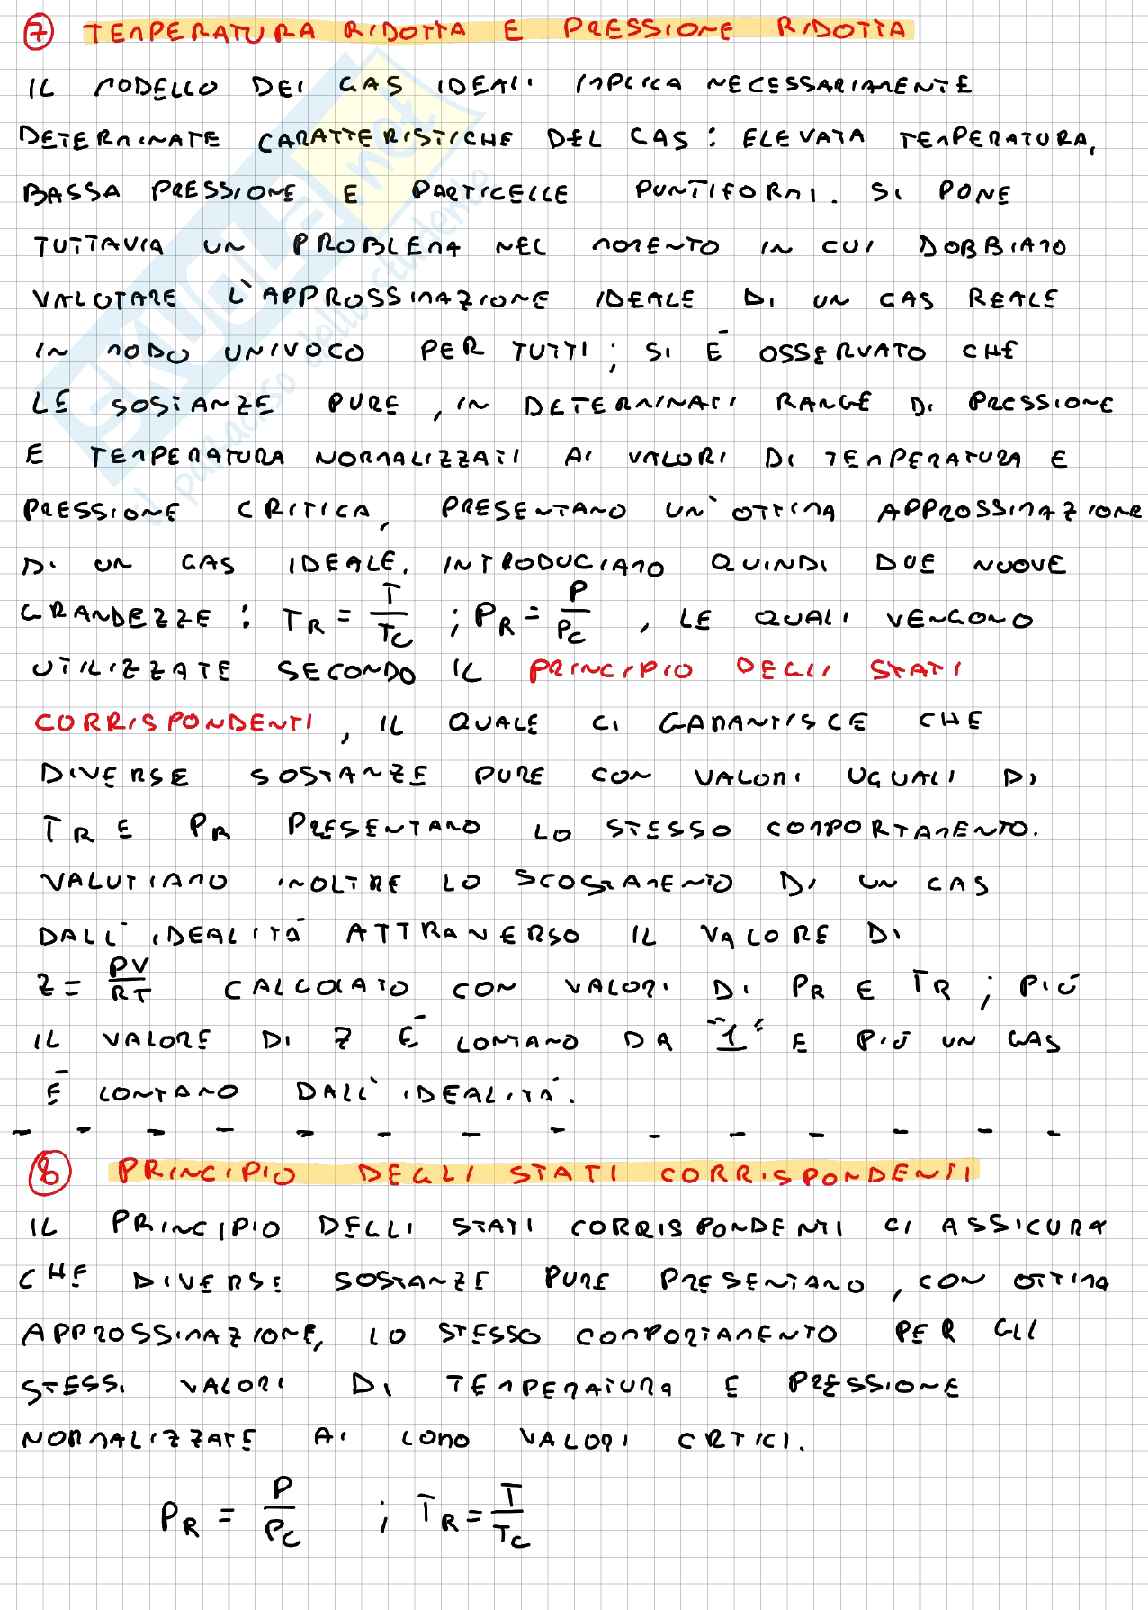 7 TEMPERATURA RIDOTTA E PRESSIONE RIDOTTA
IL MODELLO DEI GAS IDEALI IMPLICA NECESSARIAMENTE
DETERMINATE CARATTERISTICHE DEL GAS: ELEVATA TEMPERATURA,
BASSA PRESSIONE E PARTICELLE PUNTIFORMI. SI PONE
TUTTAVIA UN PROBLEMA NEL MOMENTO IN CUI DOBBIAMO
VALUTARE L'APPROSSIMAZIONE IDEALE DI UN GAS REALE
IN MODO UNIVOCO PER TUTTI; SI È OSSERVATO CHE
LE SOSTANZE PURE, IN DETERMINATI RANGE DI PRESSIONE
E TEMPERATURA NORMALIZZATI AI VALORI DI TEMPERATURA E
PRESSIONE CRITICA, PRESENTANO UN'OTTIMA APPROSSIMAZIONE
DI UN GAS IDEALE. INTRODUCIAMO QUINDI DUE NUOVE
GRANDEZZE: TR = T/TC ; PR = P/PC , LE QUALI VENGONO
UTILIZZATE SECONDO IL PRINCIPIO DEGLI STATI
CORRISPONDENTI, IL QUALE CI GARANTISCE CHE
DIVERSE SOSTANZE PURE CON VALORI UGUALI DI
TR E PR PRESENTANO LO STESSO COMPORTAMENTO.
VALUTIAMO INOLTRE LO SCOSTAMENTO DI UN GAS
DALL'IDEALITÀ ATTRAVERSO IL VALORE DI
Z = PV/RT CALCOLATO CON VALORI DI PR E TR; PIÙ
IL VALORE DI Z È LONTANO DA "1" E PIÙ UN GAS
È LONTANO DALL'IDEALITÀ.
8 PRINCIPIO DEGLI STATI CORRISPONDENTI
IL PRINCIPIO DEGLI STATI CORRISPONDENTI CI ASSICURA
CHE DIVERSE SOSTANZE PURE PRESENTANO, CON OTTIMA
APPROSSIMAZIONE, LO STESSO COMPORTAMENTO PER GLI
STESSI VALORI DI TEMPERATURA E PRESSIONE
NORMALIZZATE AI LORO VALORI CRTICI.
PR = P/PC ; TR = T/TC
SKUOLA.net
il paradiso dello studente